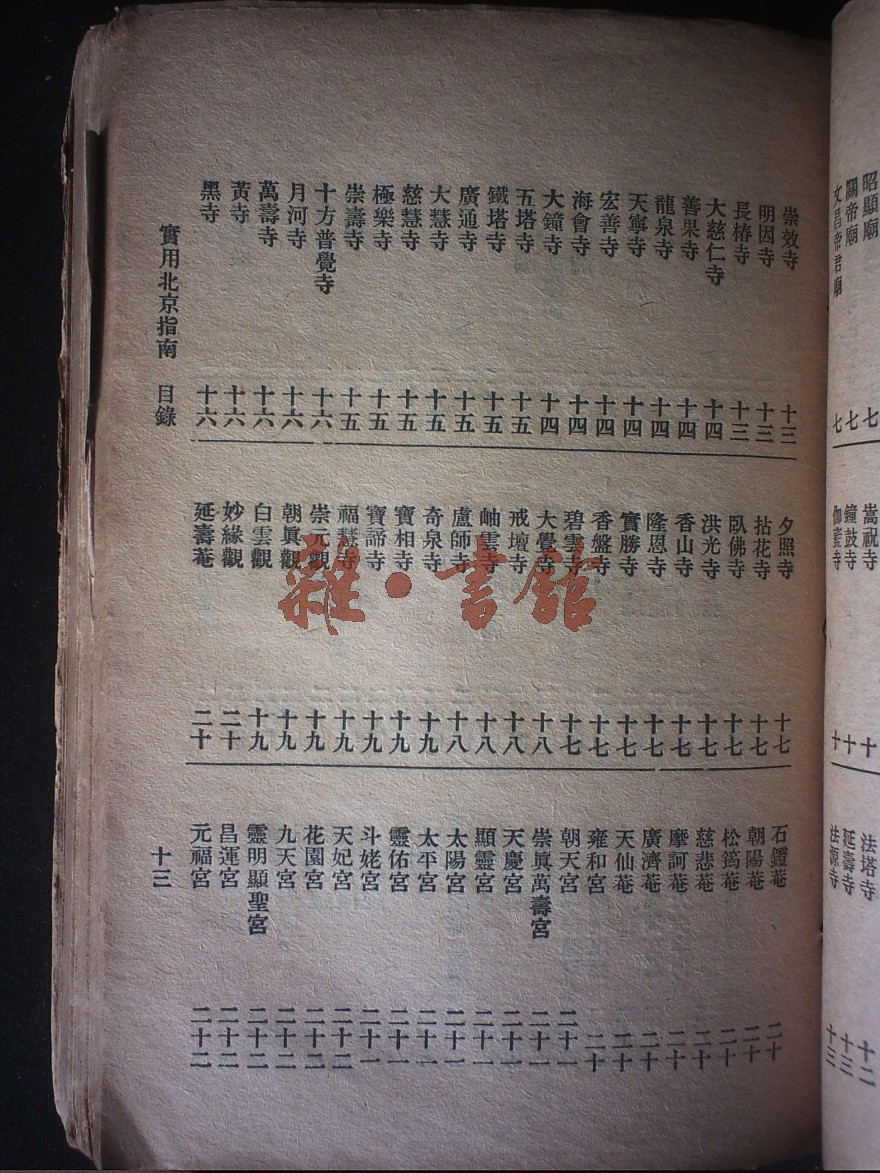 昭顯廟 七
關帝廟 七
文昌帝君廟 七
嵩祝寺 十
鐘鼓寺 十
伽藍寺 十
法塔寺 十二
延壽寺 十三
法源寺 十三
崇效寺 十三
明因寺 十三
長椿寺 十三
大慈仁寺 十四
善果寺 十四
龍泉寺 十四
天寧寺 十四
宏善寺 十四
海會寺 十四
大鐘寺 十四
五塔寺 十五
鐵塔寺 十五
廣通寺 十五
大慧寺 十五
慈慧寺 十五
極樂寺 十五
崇壽寺 十五
十方普覺寺 十六
月河寺 十六
萬壽寺 十六
黃寺 十六
黑寺 十六
夕照寺 十七
拈花寺 十七
臥佛寺 十七
洪光寺 十七
香山寺 十七
隆恩寺 十七
實勝寺 十七
香盤寺 十七
碧雲寺 十七
大覺寺 十八
戒壇寺 十八
岫雲寺 十八
盧師寺 十八
奇泉寺 十九
寶相寺 十九
寶諦寺 十九
福慧寺 十九
崇元觀 十九
朝眞觀 十九
白雲觀 十九
妙緣觀 二十
延壽菴 二十
石鐙菴 二十
朝陽菴 二十
松筠菴 二十
慈悲菴 二十
摩訶菴 二十
廣濟菴 二十
天仙菴 二十
雍和宮 二十
朝天宮 二十一
崇眞萬壽宮 二十一
天慶宮 二十一
顯靈宮 二十一
太陽宮 二十一
太平宮 二十一
靈佑宮 二十一
斗姥宮 二十一
天妃宮 二十二
花園宮 二十二
九天宮 二十二
靈明顯聖宮 二十二
昌運宮 二十二
元福宮 二十二
實用北京指南 目錄 十三
雜·書館